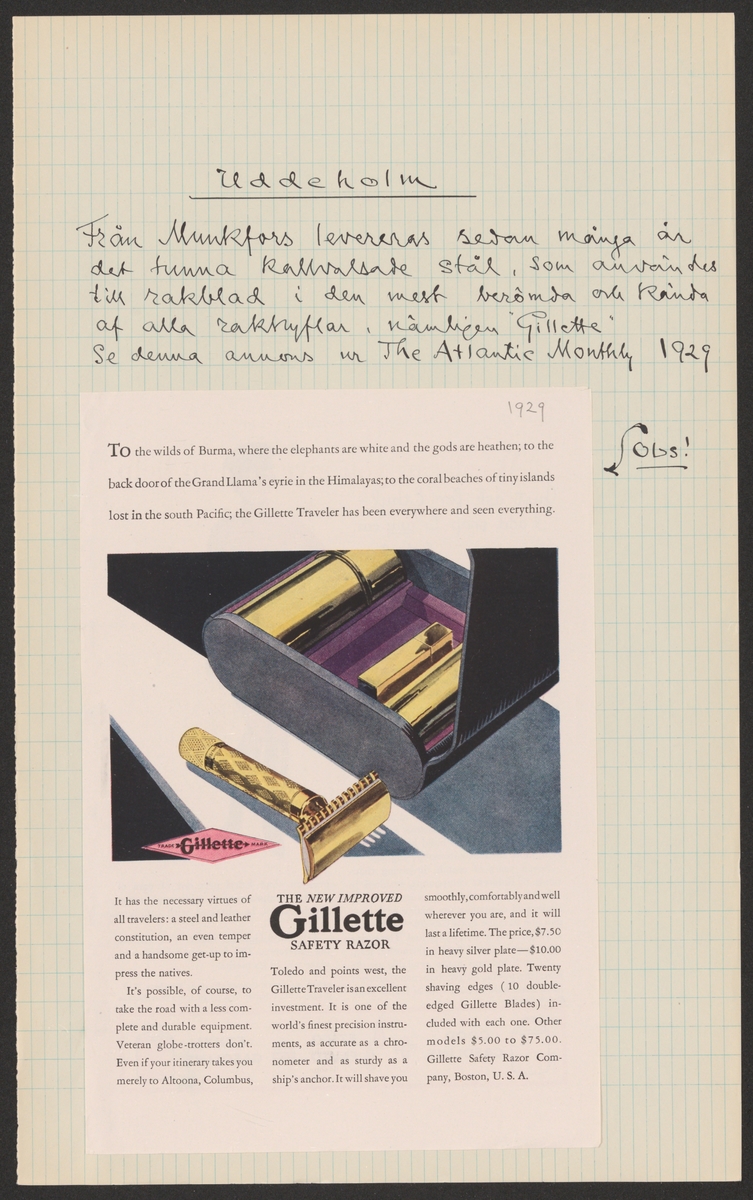 Uddeholm
Från Munkfors levereras sedan många år
det tunna kallvalsade stål, som användes
till rakblad i den mest berömda och kända
af alla rakhyflar, nämligen "Gillette"
Se denna annons ur The Atlantic Monthly 1929
Obs!
1929
TO the wilds of Burma, where the elephants are white and the gods are heathen; to the
back door of the Grand Llama's eyrie in the Himalayas; to the coral beaches of tiny islands
lost in the south Pacific; the Gillette Traveler has been everywhere and seen everything.
TRADE Gillette MARK
It has the necessary virtues of
all travelers: a steel and leather
constitution, an even temper
and a handsome get-up to im-
press the natives.
It's possible, of course, to
take the road with a less com-
plete and durable equipment.
Veteran globe-trotters don't.
Even if your itinerary takes you
merely to Altoona, Columbus,
THE NEW IMPROVED
Gillette
SAFETY RAZOR
Toledo and points west, the
Gillette Traveler is an excellent
investment. It is one of the
world's finest precision instru-
ments, as accurate as a chro-
nometer and as sturdy as a
ship's anchor. It will shave you
smoothly, comfortably and well
wherever you are, and it will
last a lifetime. The price, $7.50
in heavy silver plate—$10.00
in heavy gold plate. Twenty
shaving edges (10 double-
edged Gillette Blades) in-
cluded with each one. Other
models $5.00 to $75.00.
Gillette Safety Razor Com-
pany, Boston, U. S. A.